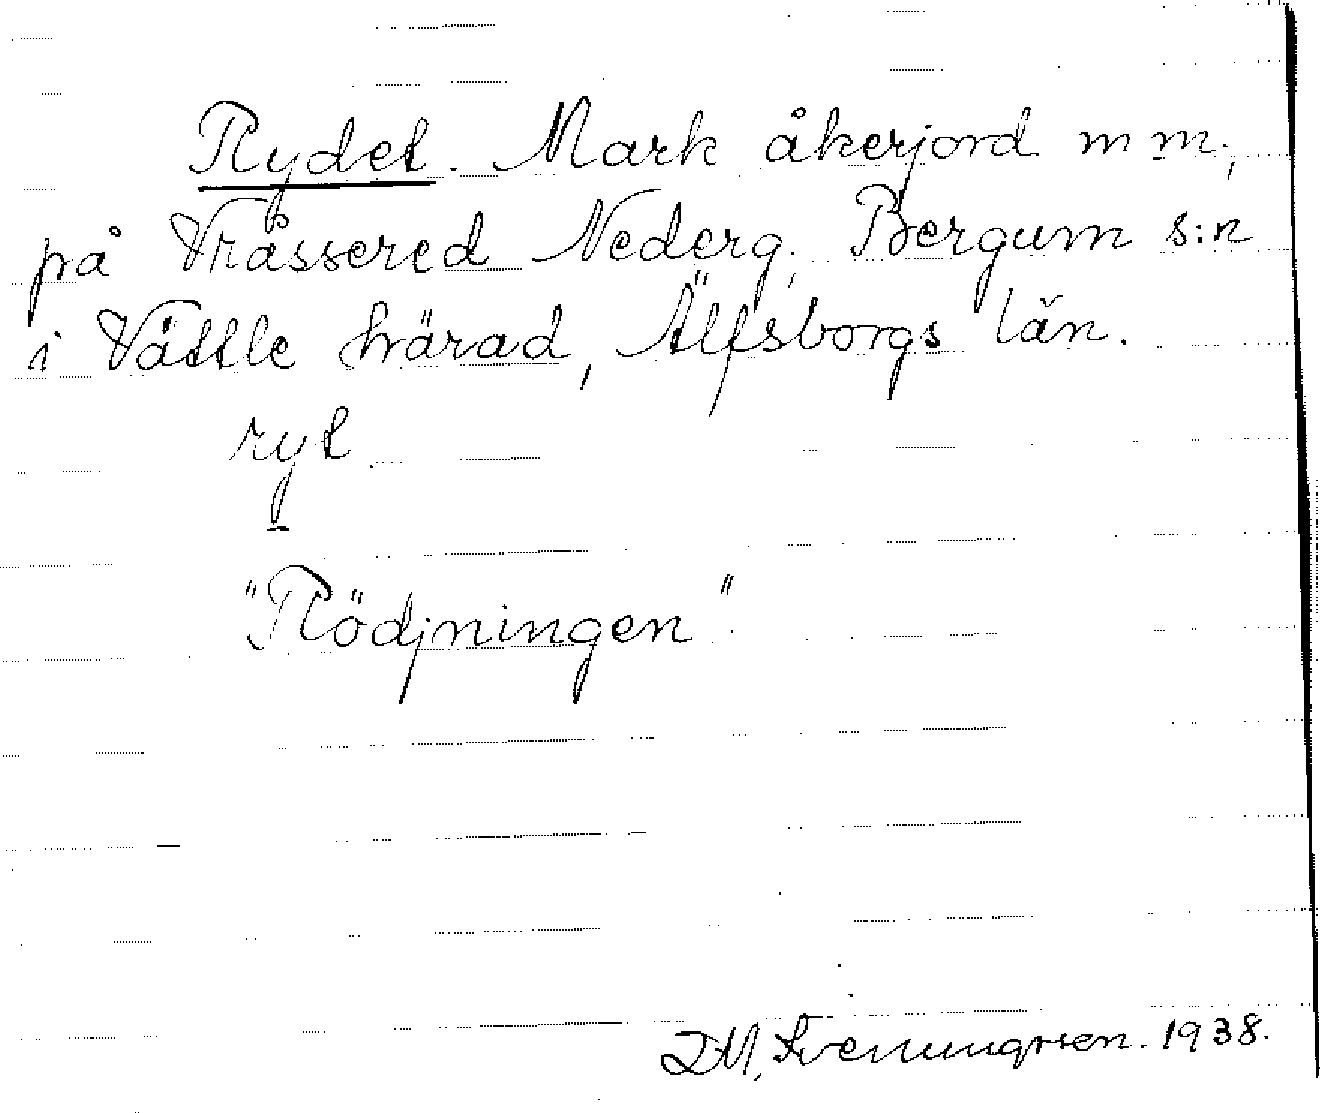 Rydet. Mark åkerjord m m.,
på Vråssered Nederg., Bergum s:n
i Vättle härad, Älfsborgs län.
ryt
"Rödjningen".
D M, Svenungsson. 1938.